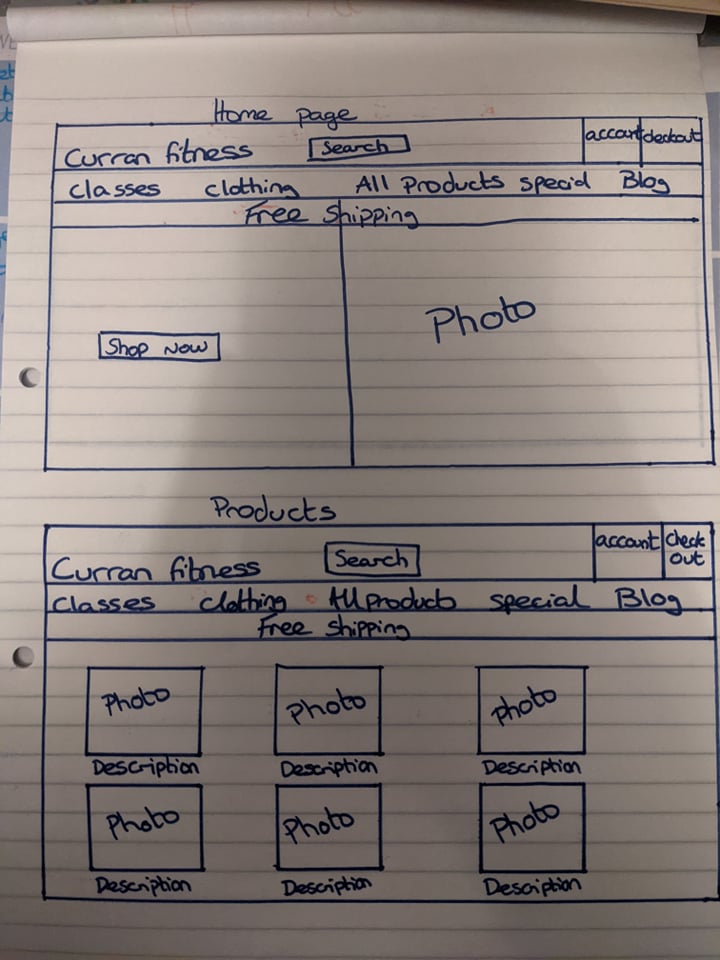 Home page
Curran fitness Search account deckout
classes clothing All Products special Blog
Free Shipping
Photo
Shop Now
Products
Curran fitness Search account Check out
classes clothing All Products special Blog
Free Shipping
Photo Photo Photo
Description Description Description
Photo Photo Photo
Description Description Description